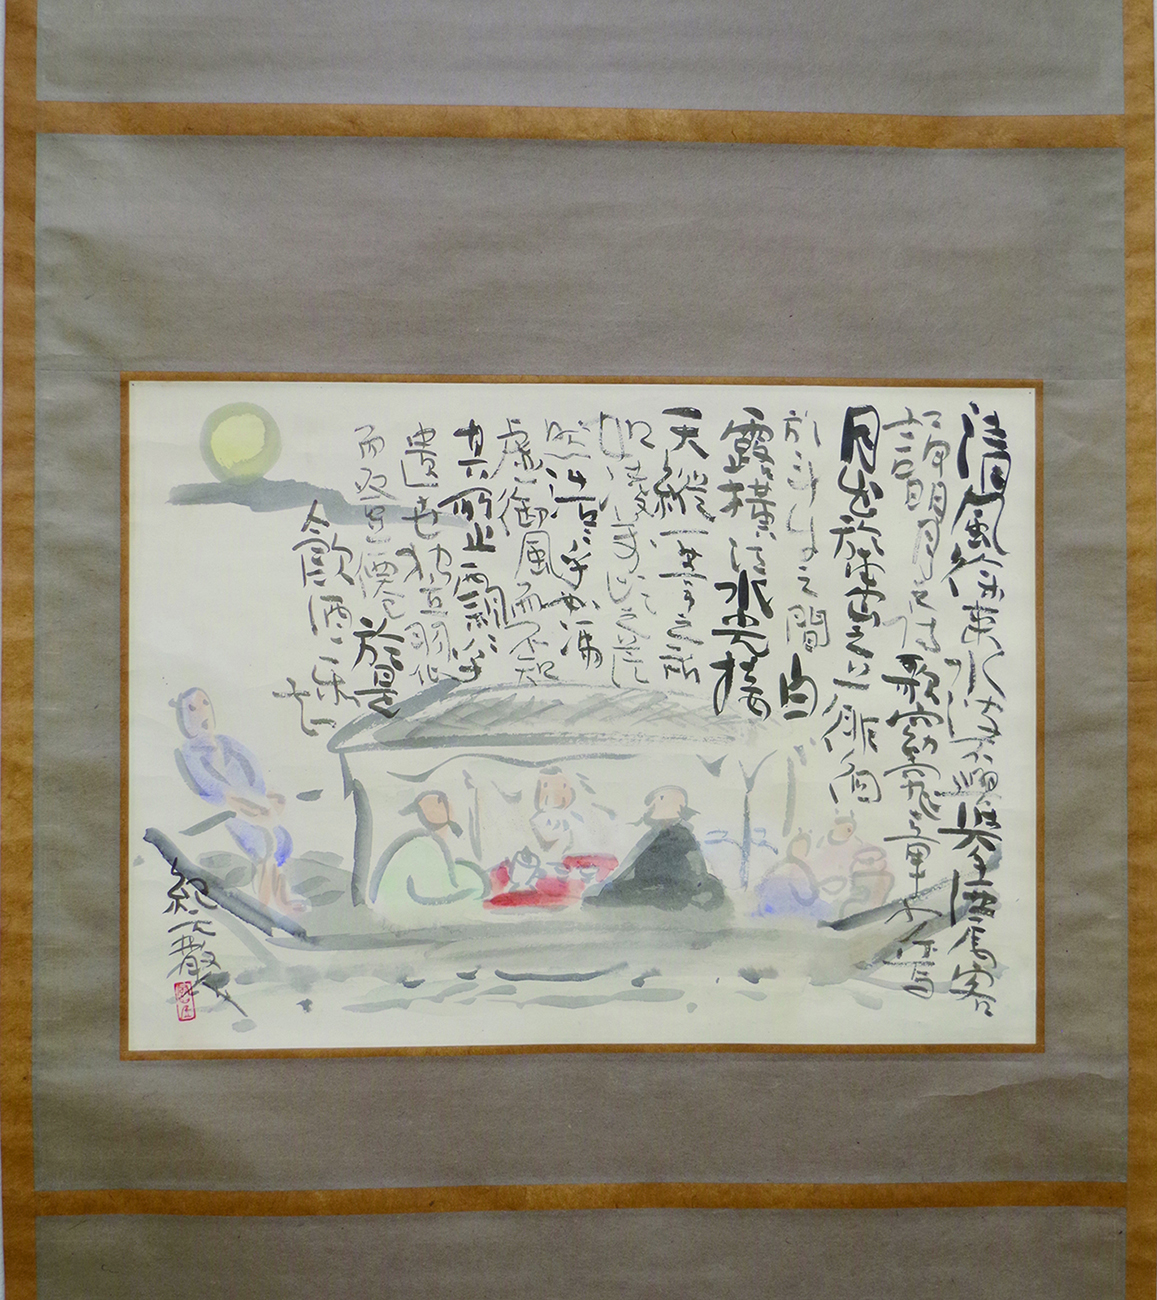 清風徐來水波不興舉酒屬客
誦明月之詩歌窈窕之章少焉
月出於東山之上徘徊
於斗牛之間白
露橫江水光接
天縱一葦之所
如凌万頃之茫
然浩〻乎如馮
虛御風而不知
其所止飄〻乎
遺世独立羽化
而登僊於是
飲酒樂
甚